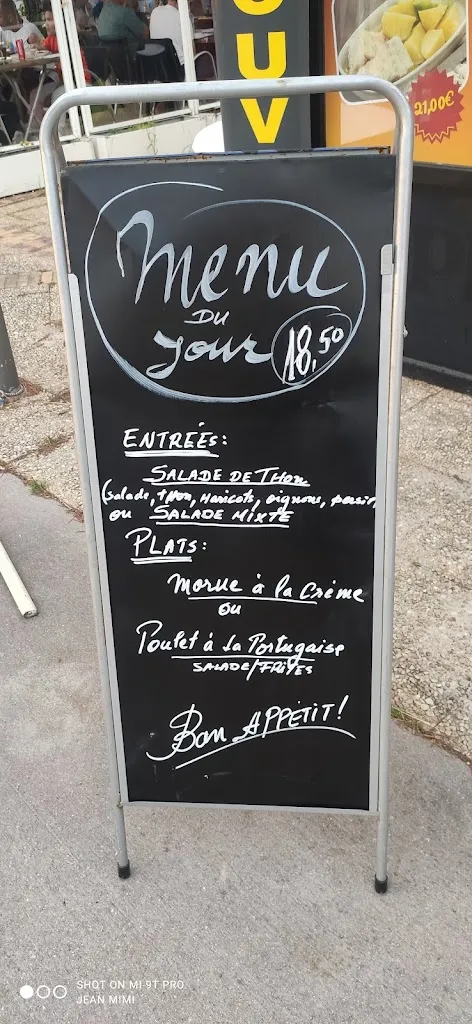 OUV
21,00€
Menu
DU
Jour 18,50
ENTRÉES:
SALADE DE THON
(salade, thon, Haricots, oignons, persil
ou SALADE MIXTE
PLATS:
Morue à la Crème
ou
Poulet à La Portugaise
SALADE/FRITES
Bon APPÉTIT!
SHOT ON MI 9T PRO
JEAN MIMI